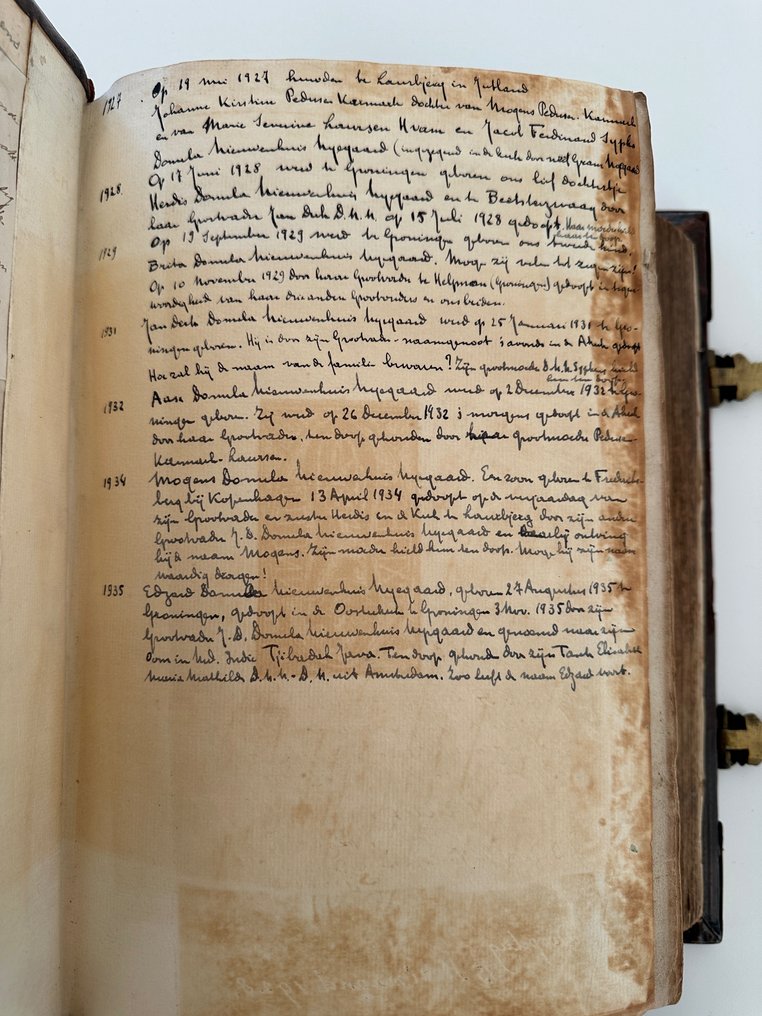 1927 Op 19 mei 1927 huwden te Laurbjerg in Jutland
Johanne Kirstine Pedersen Kærmark dochter van Mogens Pedersen Kærmark
en van Marie Severine Laursen Hvam en Jacob Ferdinand Sypko
Domela Nieuwenhuis Nyegaard (ingezegend in de kerk door
1928. Op 17 Juni 1928 werd te Groningen geboren ons lief dochtertje
Herdis Domela Nieuwenhuis Nyegaard en te Beetsterzwaag door
haar Grootvader Jan Derk D.N.N. op 15 Juli 1928 gedoopt. Haar moeder hield
haar ten doop.
1929 Op 19 September 1929 werd te Groningen geboren ons tweede kind,
Brita Domela Nieuwenhuis Nyegaard. Moge zij velen tot zegen zijn!
Op 10 November 1929 door haren Grootvader te Helpman (Groningen) gedoopt in tegen-
woordigheid van haar drie anderen Grootouders en ons beiden.
1931 Jan Derk Domela Nieuwenhuis Nyegaard werd op 25 Januari 1931 te Gro-
ningen geboren. Hij is door zijn Grootvader-naamgenoot 's avonds in de gedoopt
Hoe zal hij de naam van de familie bewaren? Zijn grootmoeder D.N.N. Syphens hield
hem ten doop.
1932 Aase Domela Nieuwenhuis Nyegaard werd op 2 December 1932 te Gro-
ningen geboren. Zij werd op 26 December 1932 's morgens gedoopt in de
door haar Grootvader, ten doop gehouden door grootmoeder Pedersen
Kærmark-Laursen.
1934 Mogens Domela Nieuwenhuis Nyegaard. Een zoon geboren te Frederiks-
berg bij Kopenhagen 13 April 1934 gedoopt op de verjaardag van
zijn Grootvader en zuster Herdis in de Kerk te Laurbjerg door zijn andere
Grootvader J.D. Domela Nieuwenhuis Nyegaard en ontving
hij de naam Mogens. Zijn moeder hield hem ten doop. Moge hij zijn naam
waardig dragen!
1935 Edzard Domela Nieuwenhuis Nyegaard, geboren 27 Augustus 1935 te
Groningen, gedoopt in de Oosterkerk te Groningen 3 Nov. 1935 door zijn
Grootvader J.D. Domela Nieuwenhuis Nyegaard en genoemd naar zijn
Oom in Ned. Indië Tjibadak Java. Ten doop gehouden door zijn Tante Elisabeth
Maria Mathilde D.N.N.-D.N. uit Amsterdam. Zoo leeft de naam Edzard voort.